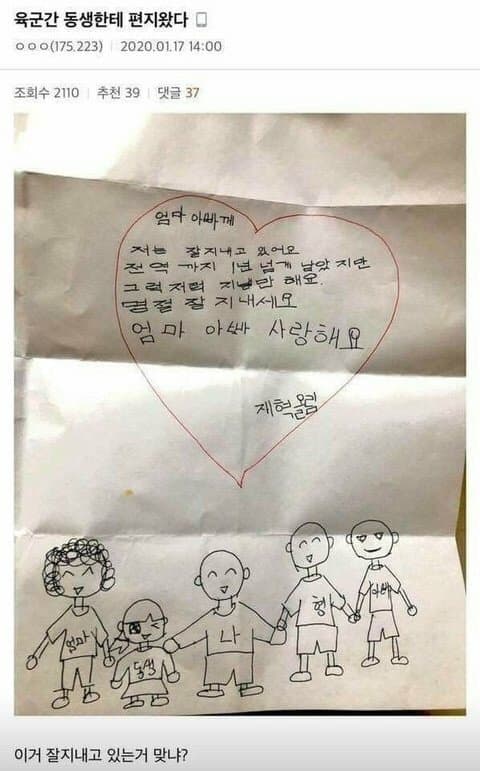 육군간 동생한테 편지왔다
ㅇㅇㅇ(175.223) | 2020.01.17 14:00
조회수 2110 | 추천 39 | 댓글 37
엄마 아빠께
저는 잘지내고 있어요
전역 까지 1년 넘게 남았지만
그럭저럭 지낼만 해요.
명절 잘 지내세요
엄마 아빠 사랑해요
재혁올림
엄마
동생
나
형
아빠
이거 잘지내고 있는거 맞냐?